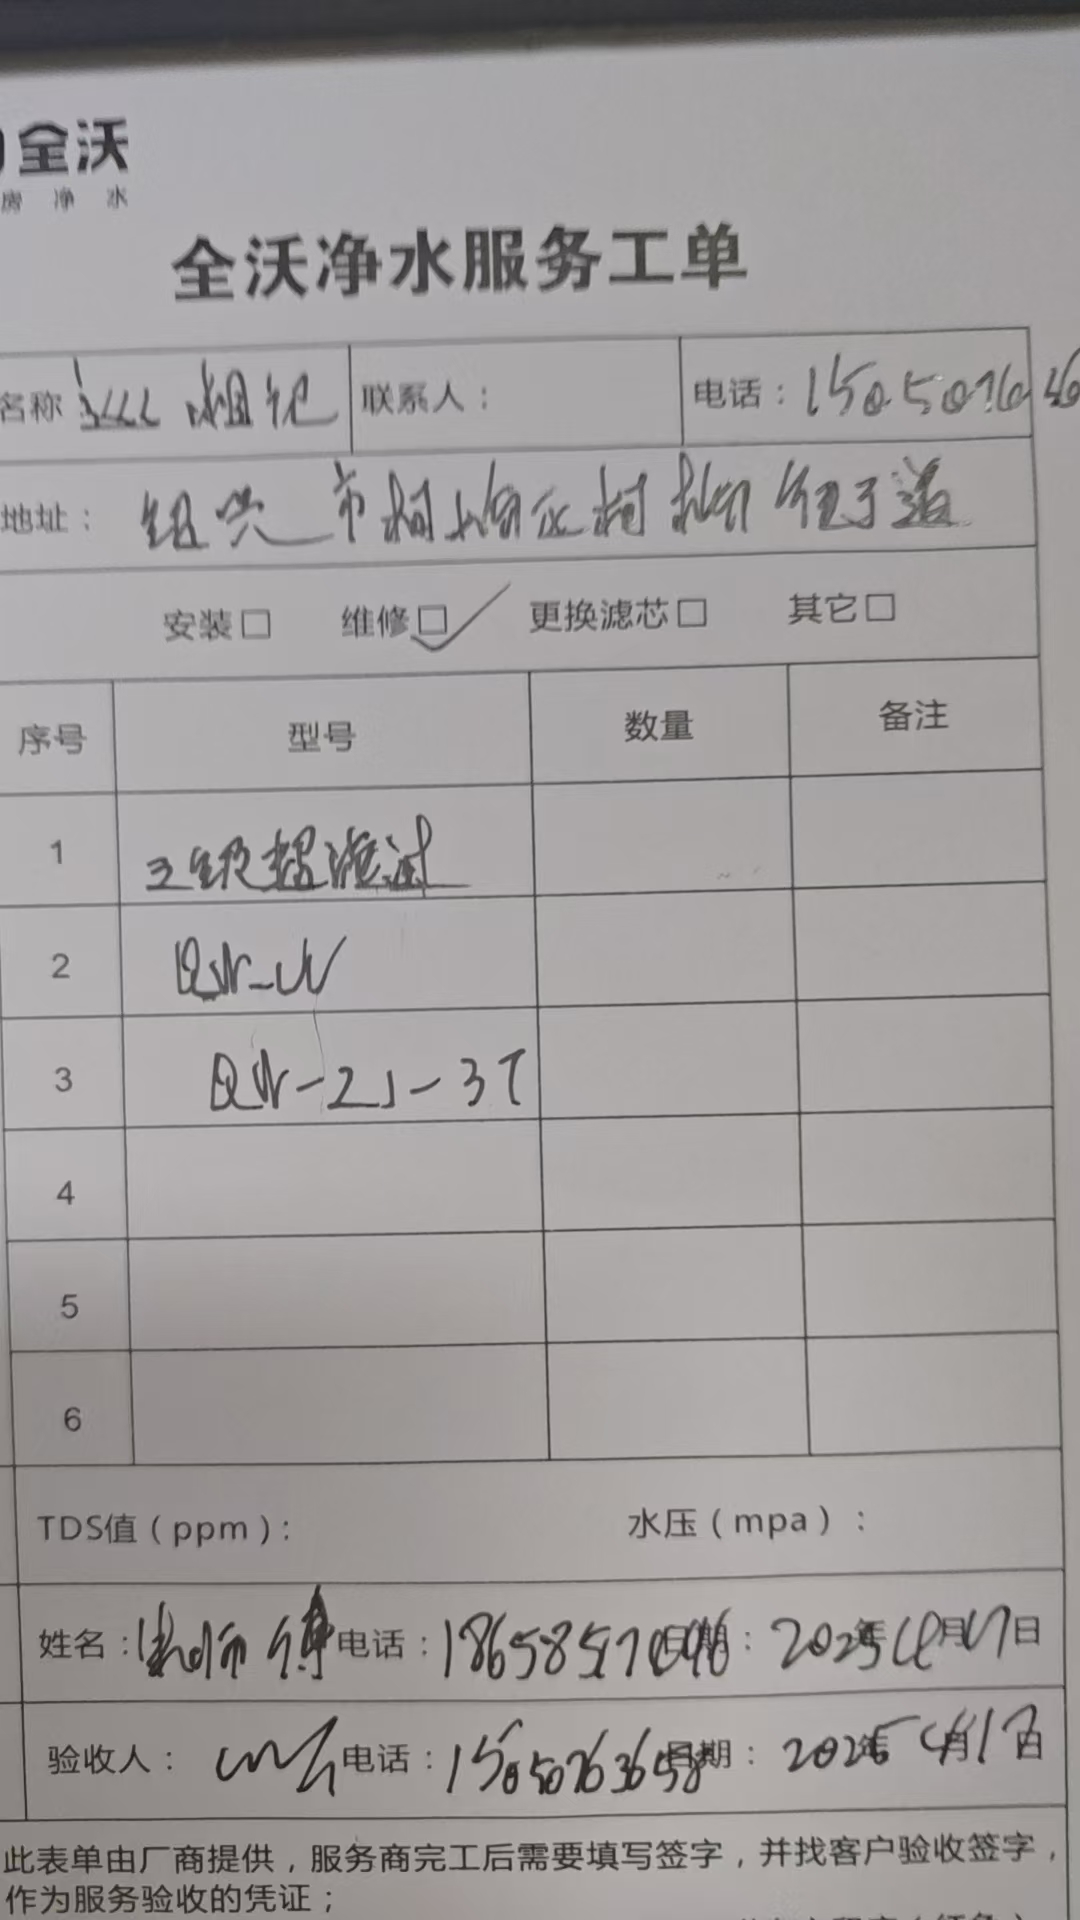 全沃
房净水
全沃净水服务工单
名称 联系人： 电话：150507636
地址：绍兴市柯桥区柯桥街道
安装□ 维修□✓ 更换滤芯□ 其它□
序号 型号 数量 备注
1 五级超滤
2 QW-
3 QW-21-3T
4
5
6
TDS值（ppm）： 水压（mpa）：
姓名： 师傅 电话：186585 日期：2025年4月17日
验收人： 电话：15050763658 日期：2025年4月17日
此表单由厂商提供，服务商完工后需要填写签字，并找客户验收签字，
作为服务验收的凭证；